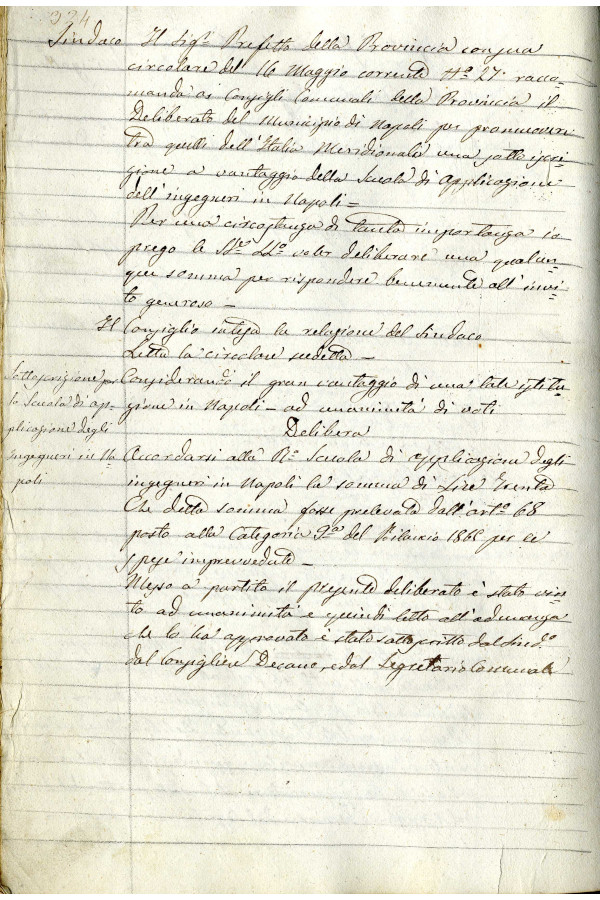 324
Sindaco Il Sig.r Prefetto della Provinccia con sua
circolare del 16 Maggio corrente N.o 27. racco-
manda ai Consigli Comunali della Provinccia il
Deliberato del Municipio di Napoli per promuovere
tra quelli dell'Italia Meridionale una sottoscri-
zione a vantaggio della Scuola di Applicazione
dell'ingegneri in Napoli =
Per una circostanza di tanta importanza io
prego le SS.e LL.e voler deliberare una qualun-
que somma per rispondere benemente all'invi-
to generoso -
Il Consiglio intesa la relazione del Sindaco
Letta la circolare sudetta -
Considerando il gran vantaggio di una tale istitu-
zione in Napoli - ad unanimità di voti
Delibera
Sottoscrizione per
la Scuola di ap-
plicazione degli
ingegneri in Na-
poli
Accordarsi alla R.a Scuola di applicazione degli
ingegneri in Napoli la somma di Lire Trenta
Che detta somma fosse prelevata dall'art.o 68
posto alla Categoria 9.a del Bilancio 1868 per le
spese imprevvedute -
Messo a partito il presente deliberato è stato vin-
to ad unanimità e quindi letto all'adunanza
che lo ha approvato è stato sottoscritto dal Sind.o
dal Consigliere Decano, e dal Segretario Comunale